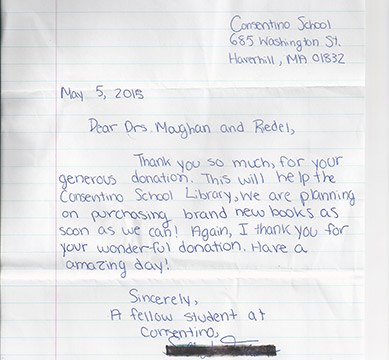 Consentino School
685 Washington St.
Haverhill, MA 01832
May 5, 2015
Dear Drs. Maughan and Riedel,
Thank you so much, for your
generous donation. This will help the
Consentino School Library, We are planning
on purchasing brand new books as
soon as we can! Again, I thank you for
your wonderful donation. Have a
amazing day!
Sincerely,
A fellow student at
Consentino,